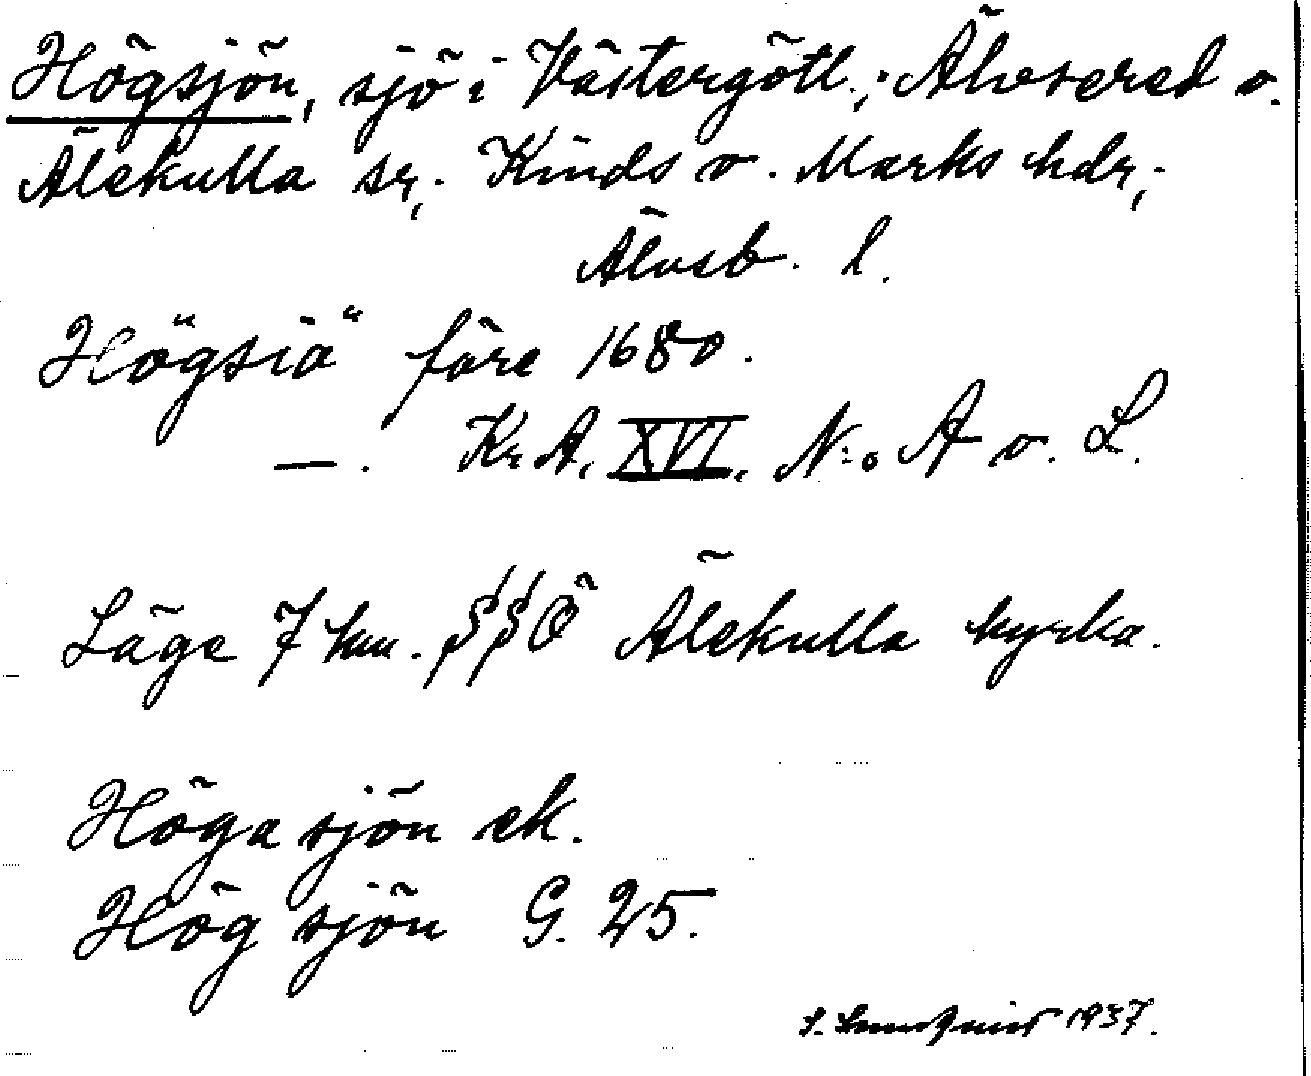 Högsjön, sjö i Västergötl.; Älvsered o.
Älekulla sr, Kinds o. Marks hdr,
Älvsb. l.
Högsiä" före 1680.
—. Kr.A. XVI. N:o A o. L.
Läge 7 km. SSÖ Älekulla kyrka.
Höga sjön ek.
Hög sjön G. 25.
S. 1937.